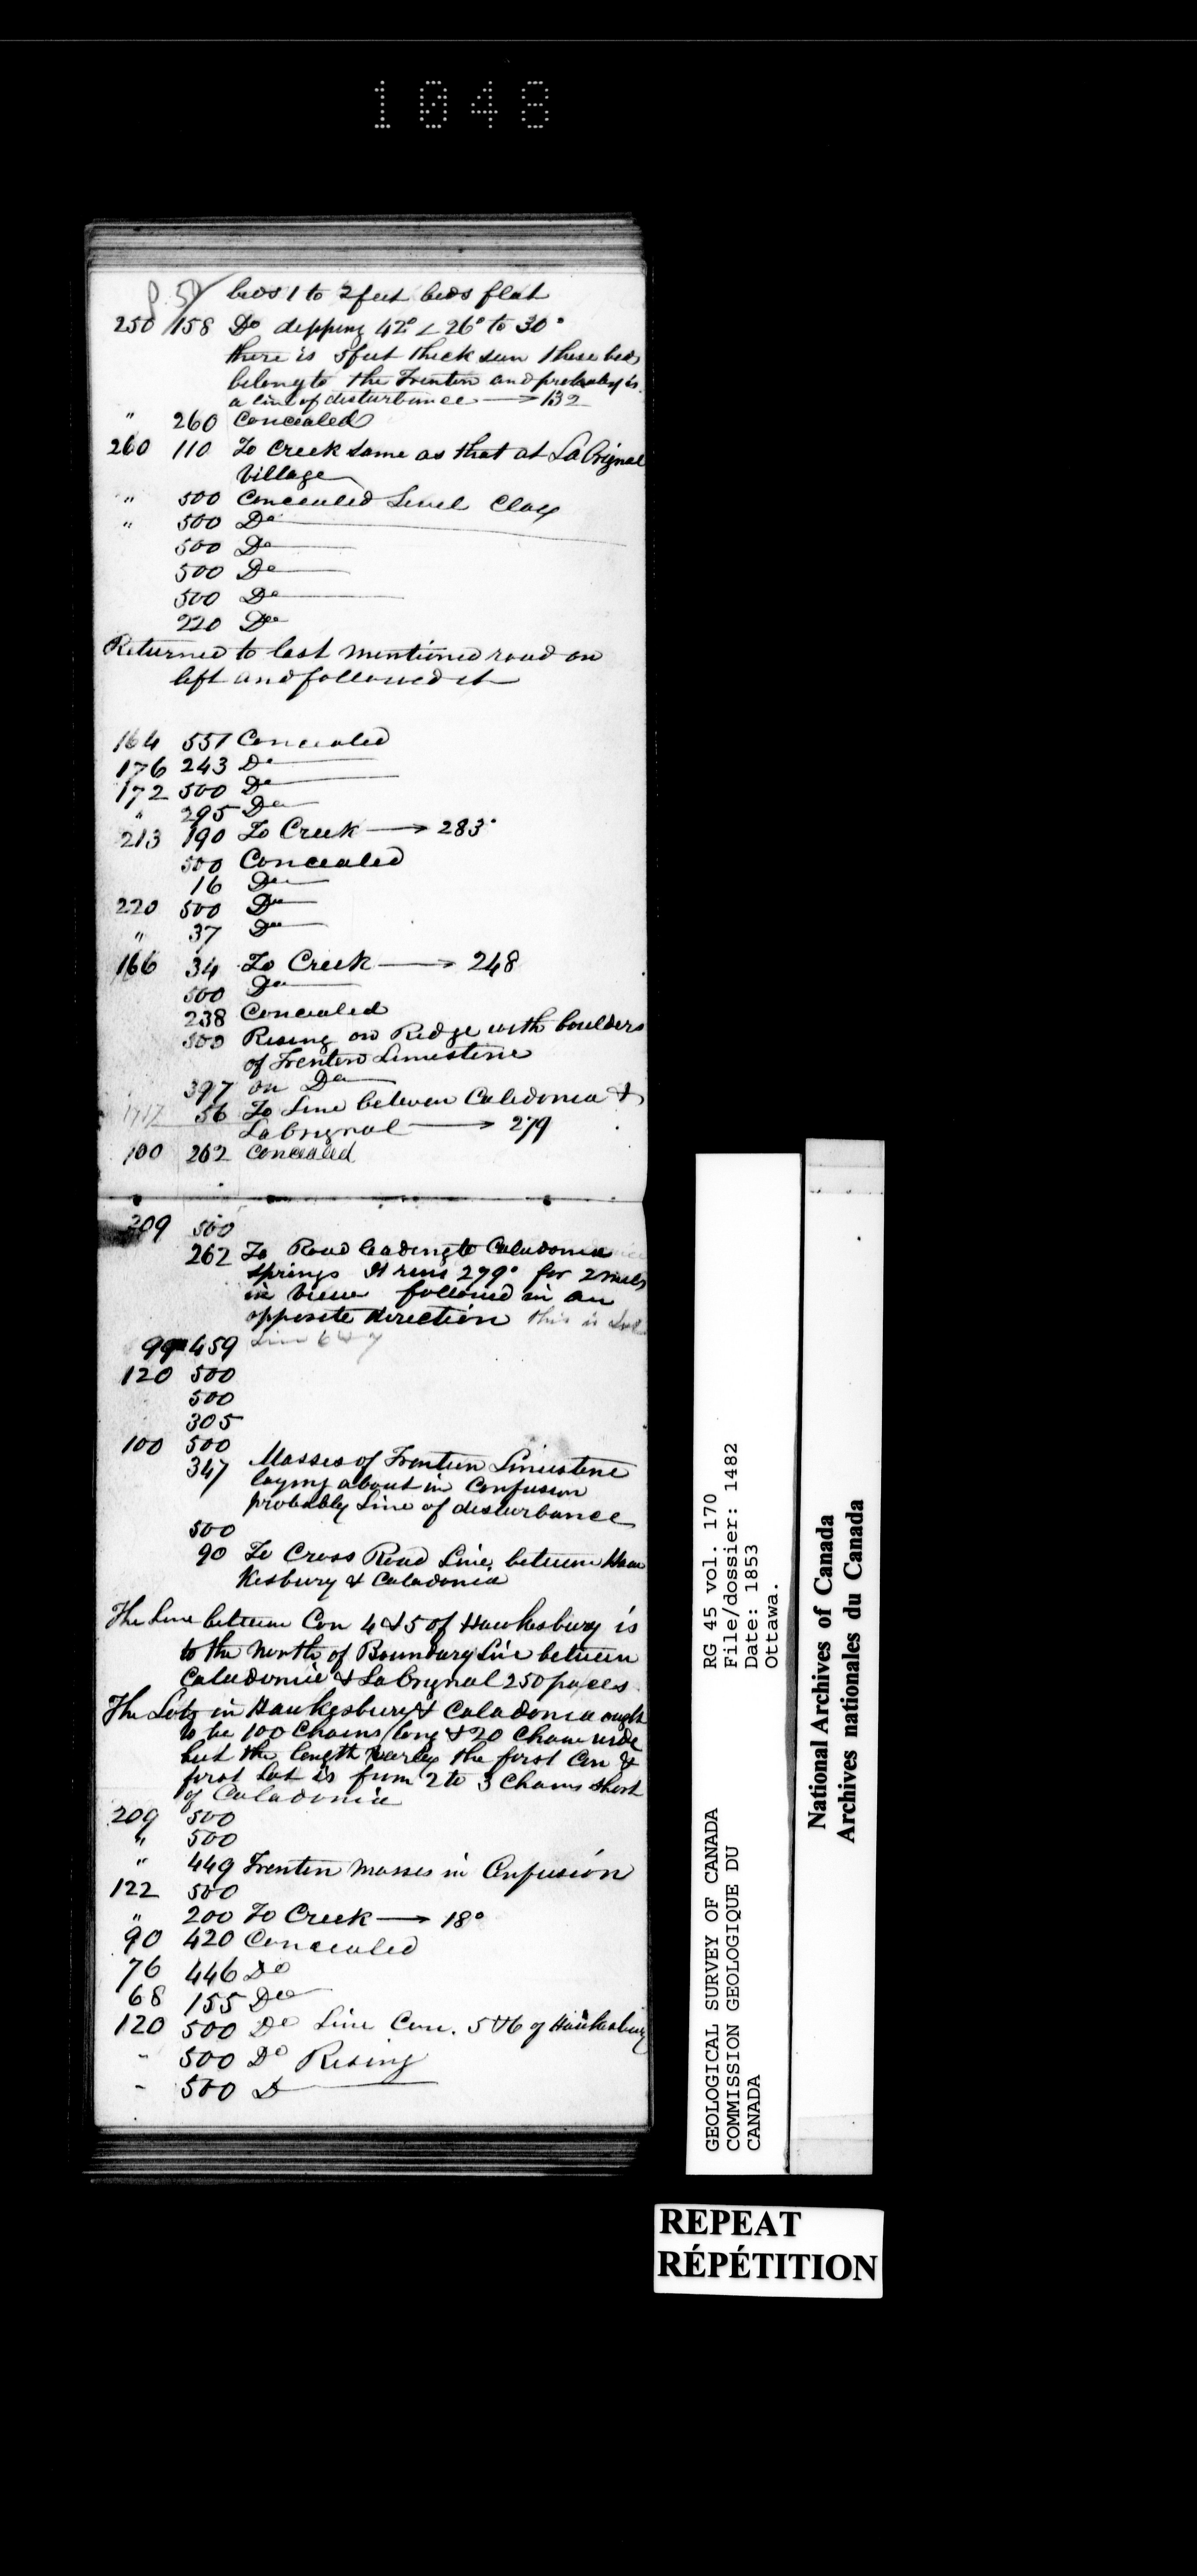 1048
p. 59 beds 1 to 2 feet beds flat
250 158 Do depping 42° ∠ 26° to 30°
there is 5 feet thick seen These beds
belong to the Trenton and probabley is
a line of disturbance → 132
" 260 Concealed
260 110 To Creek same as that at LaOrignal
Village
" 500 Concealed Level Clay
" 500 Do
500 Do
500 Do
500 Do
220 Do
Returned to last mentioned road on
left and followed it
164 551 Concealed
176 243 Do
172 500 Do
" 295 Do
213 190 To Creek → 283°
500 Concealed
16 Do
220 500 Do
" 37 Do
166 34 To Creek → 248
500 Do
238 Concealed
500 Rising on Ridge with boulders
of Trenton Limestone
397 on Do
56 To Line between Caledonia &
LaOrignal → 279
100 262 Concealed
209 500
262 To Road leading to Caladonia
Springs It runs 279° for 2 miles
in view followed in an
opposite direction this is
Line 6 & 7
99 459
120 500
500
305
100 500
347 Masses of Trenton Limestone
laying about in Confusion
probably Line of disturbance
500
90 To Cross Road Line between Haw
kesbury & Caladonia
The Line between Con 4 & 5 of Hawkesbury is
to the North of Boundary Line between
Caladonia & LaOrignal 250 paces
The Lots in Hawkesbury & Caladonia ought
to be 100 Chains long & 20 Chains wide
but the length varies the first Con &
first Lot is from 2 to 3 Chains short
of Caladonia
209 500
" 500
" 449 Trenton masses in Confusion
122 500
" 200 To Creek → 18°
90 420 Concealed
76 446 Do
68 155 Do
120 500 Do Line Con. 5 & 6 of Hawkesbury
" 500 Do Rising
" 500 D
GEOLOGICAL SURVEY OF CANADA
COMMISSION GEOLOGIQUE DU
CANADA
RG 45 vol. 170
File/dossier: 1482
Date: 1853
Ottawa.
National Archives of Canada
Archives nationales du Canada
REPEAT
RÉPÉTITION